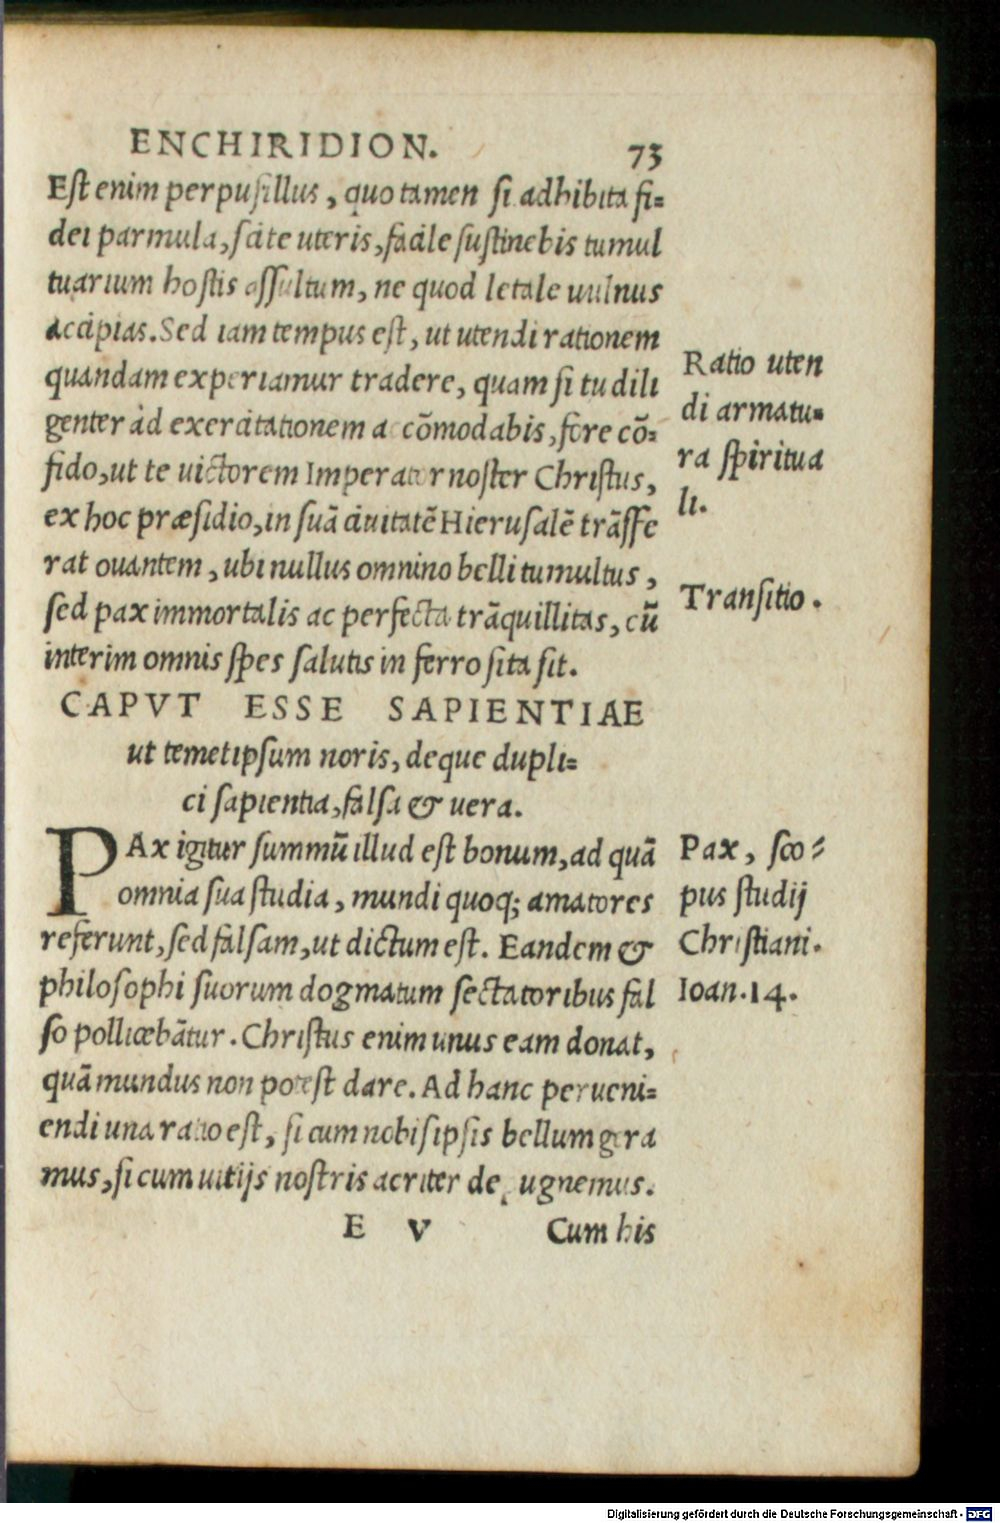 ENCHIRIDION. 73
Est enim perpusillus, quo tamen si adhibita fi=
dei parmula, scite uteris, facile sustinebis tumul
tuarium hostis assultum, ne quod letale uulnus
accipias. Sed iam tempus est, ut utendi rationem
quandam experiamur tradere, quam si tu dili
genter ad exercitationem accõmodabis, fore cõ=
fido, ut te uictorem Imperator noster Christus,
ex hoc præsidio, in suã ciuitatẽ Hierusalẽ trãsfe
rat ouantem, ubi nullus omnino belli tumultus,
sed pax immortalis ac perfecta trãquillitas, cũ
interim omnis spes salutis in ferro sita sit.
Ratio uten
di armatu=
ra spiritua
li.
Transitio.
CAPVT ESSE SAPIENTIAE
ut temetipsum noris, deque dupli=
ci sapientia, falsa & uera.
PAx igitur summũ illud est bonum, ad quã
omnia sua studia, mundi quoq; amatores
referunt, sed falsam, ut dictum est. Eandem &
philosophi suorum dogmatum sectatoribus fal
so pollicebãtur. Christus enim unus eam donat,
quã mundus non potest dare. Ad hanc perueni=
endi una ratio est, si cum nobisipsis bellum gera
mus, si cum uitijs nostris acriter depugnemus.
Pax, sco=
pus studij
Christiani.
Ioan.14.
E V Cum his
Digitalisierung gefördert durch die Deutsche Forschungsgemeinschaft - DFG